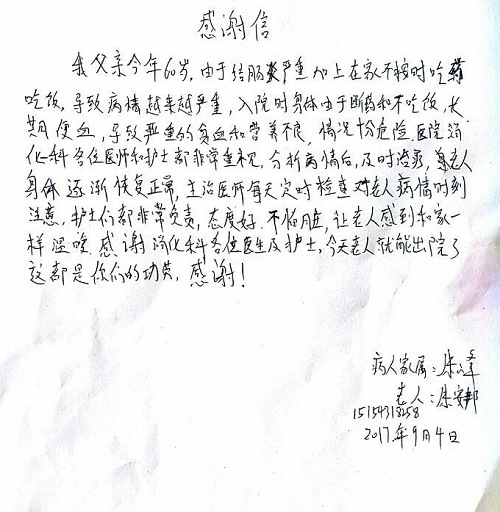 感谢信
我父亲今年60岁,由于结肠炎严重加上在家不按时吃药
吃饭,导致病情越来越严重,入院时身体由于断药和不吃饭,长
期便血,导致严重的贫血和营养不良,情况十分危险.医院消
化科各位医师和护士都非常重视,分析病情后,及时治疗,老人
身体逐渐恢复正常,主治医师每天定时检查对老人病情时刻
注意,护士们都非常负责,态度好.不怕脏,让老人感到和家一
样温暖.感谢消化科各位医生及护士,今天老人就能出院了
这都是你们的功劳,感谢!
病人家属:朱峰
老人:朱安邦
15154318258
2017年9月4日